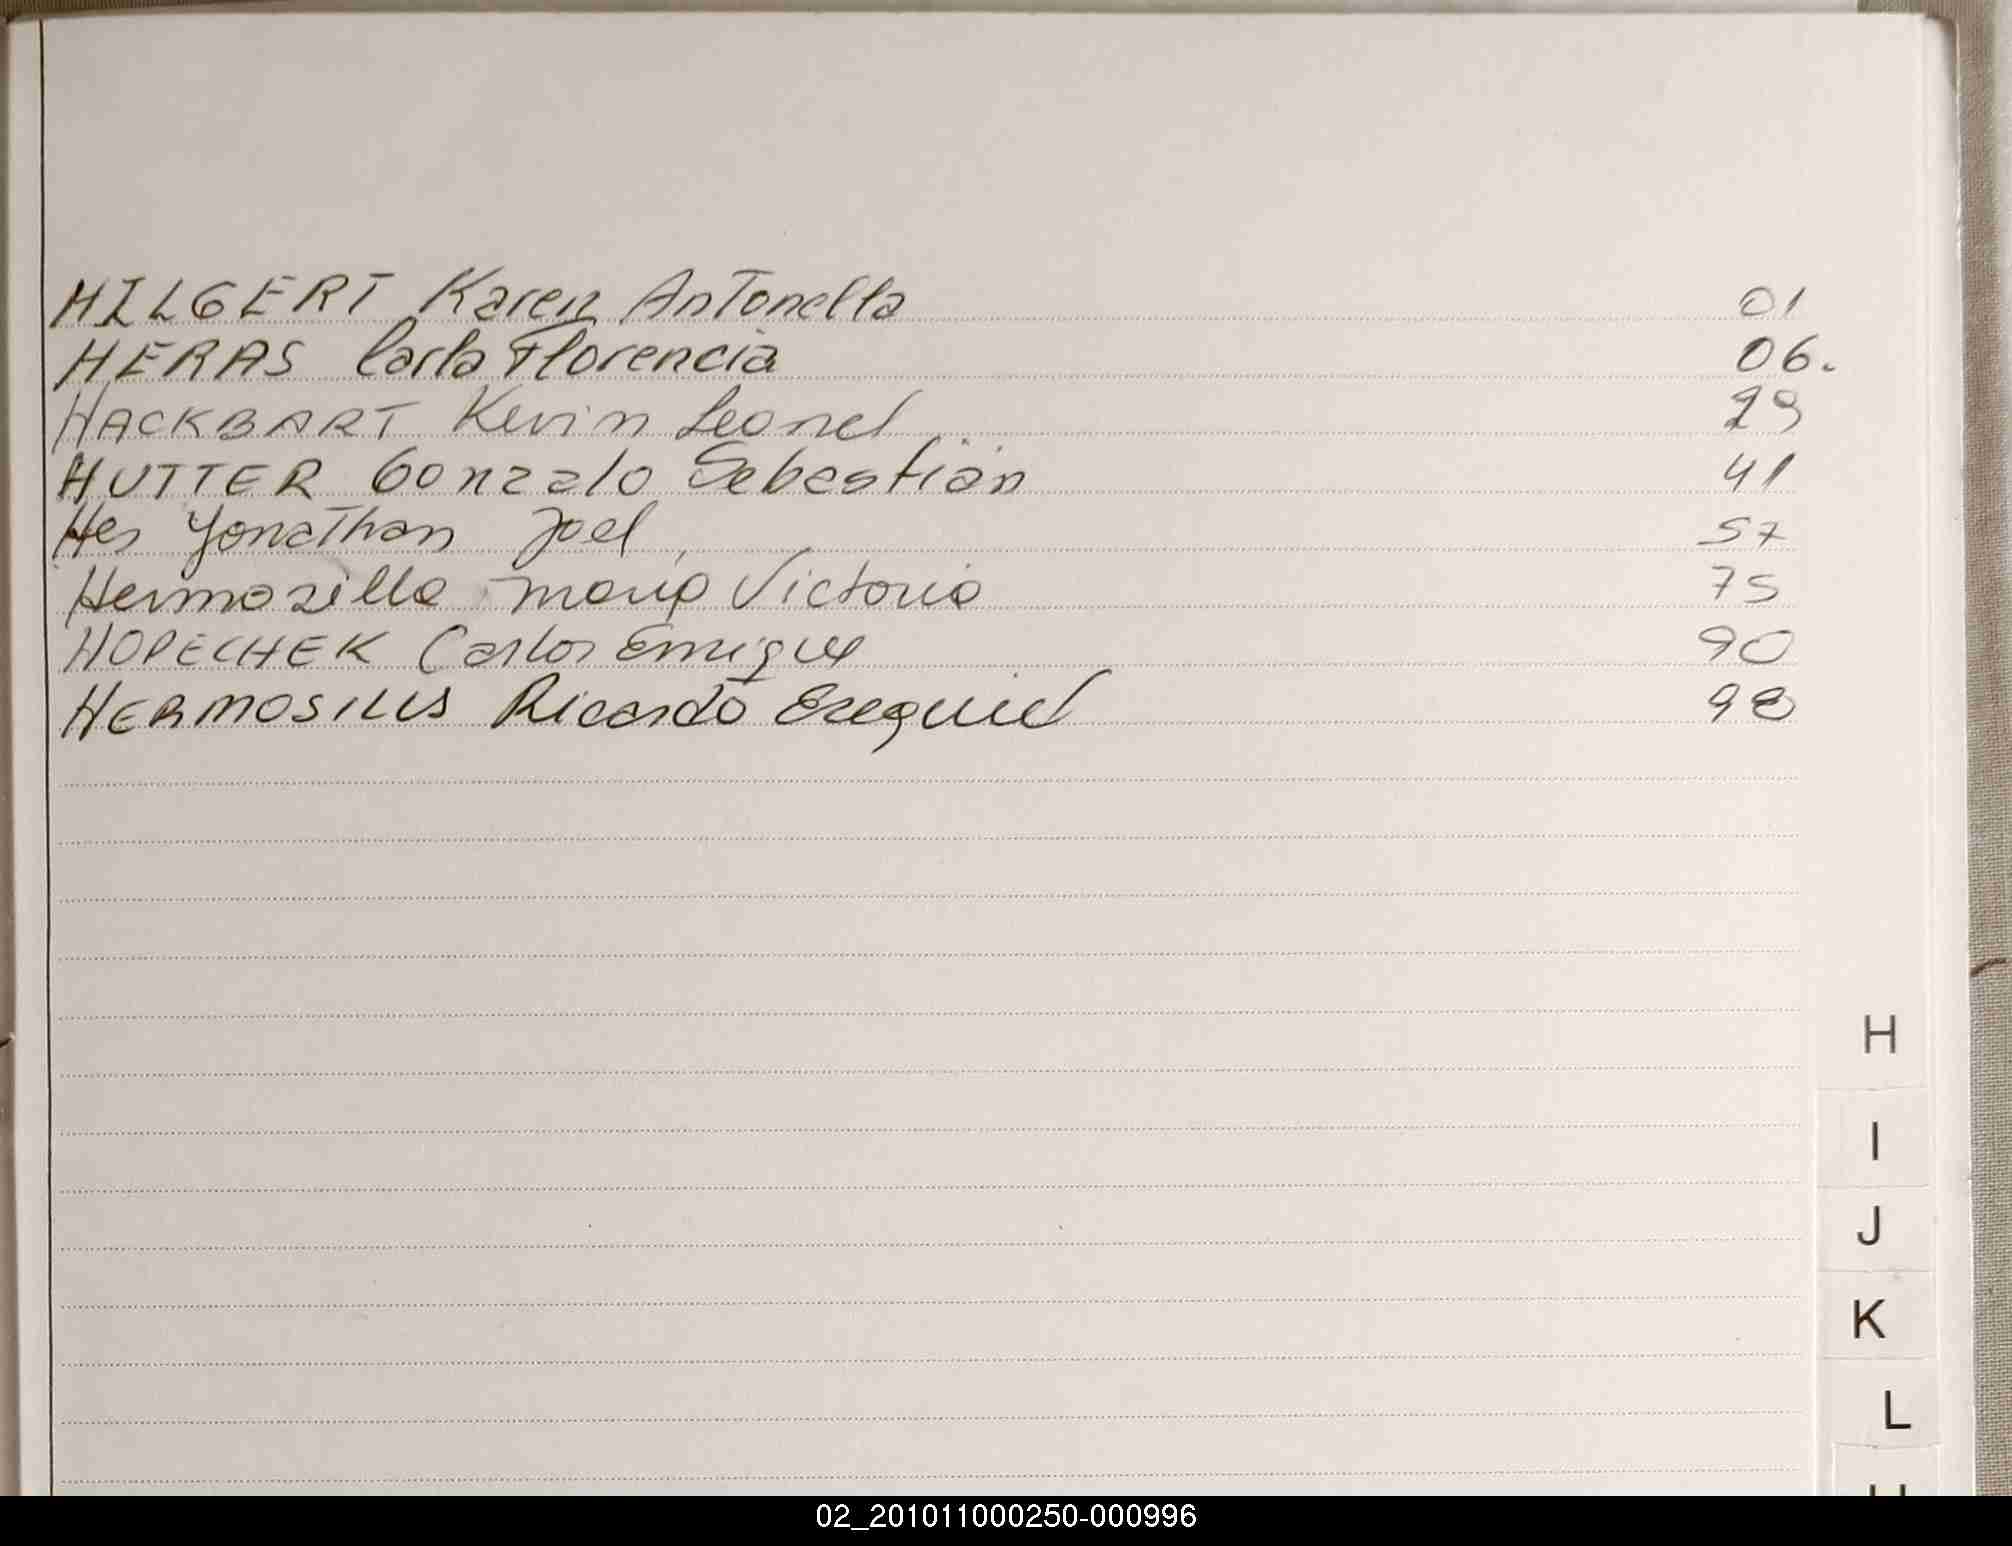 HILGERT Karen Antonella 01
HERAS Carla Florencia 06.
HACKBART Kevin Leonel 29
HUTTER Gonzalo Sebastián 41
Hes Yonathan Joel 57
Hermosilla María Victoria 75
HOPECHEK Carlos Enrique 90
Ricardo Ezequiel 98
H
I
J
K
L
02_201011000250-000996